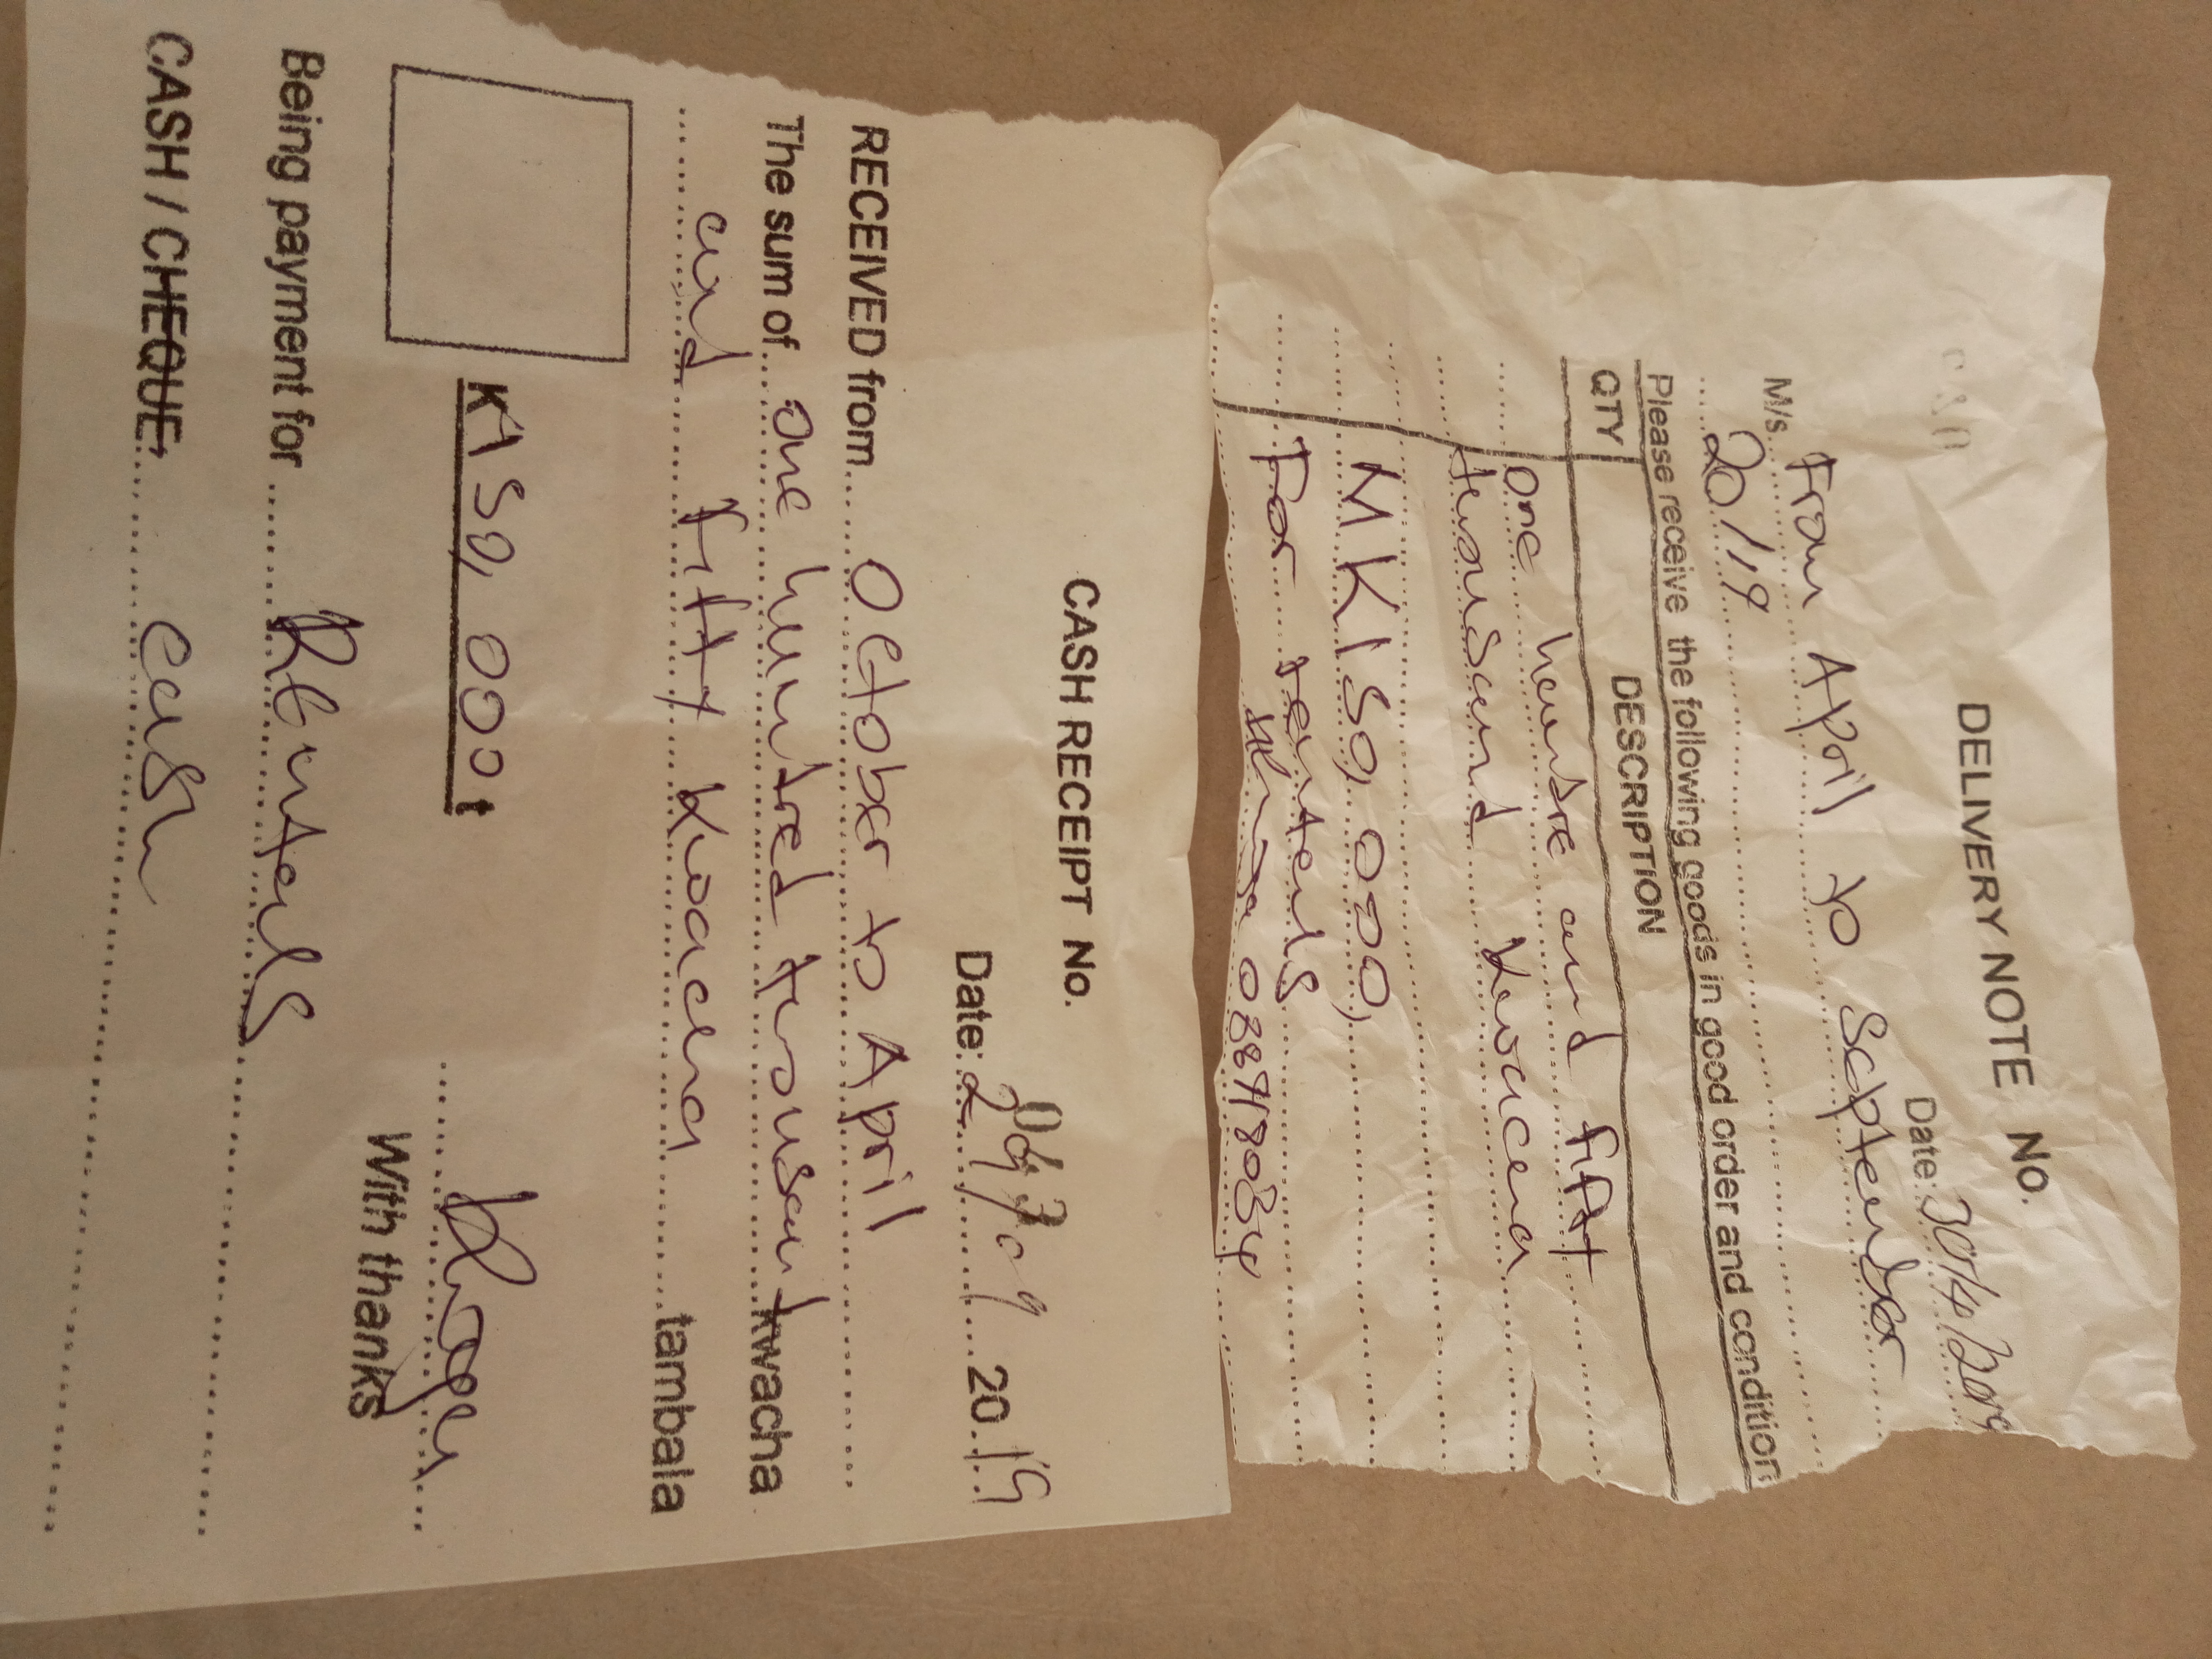 DELIVERY NOTE No.
Date: 30/4/2019
From April to September
M/s
20/19
Please receive the following goods in good order and condition
QTY DESCRIPTION
one hundre and fift
thousand kwacha
MK150,000)
For rentals
CASH RECEIPT No.
Date: 20 19
RECEIVED from October to April
The sum of one hundred thousand kwacha
and fifty kwacha tambala
K150,000 t
With thanks
Being payment for Rentals
CASH / CHEQUE, cash